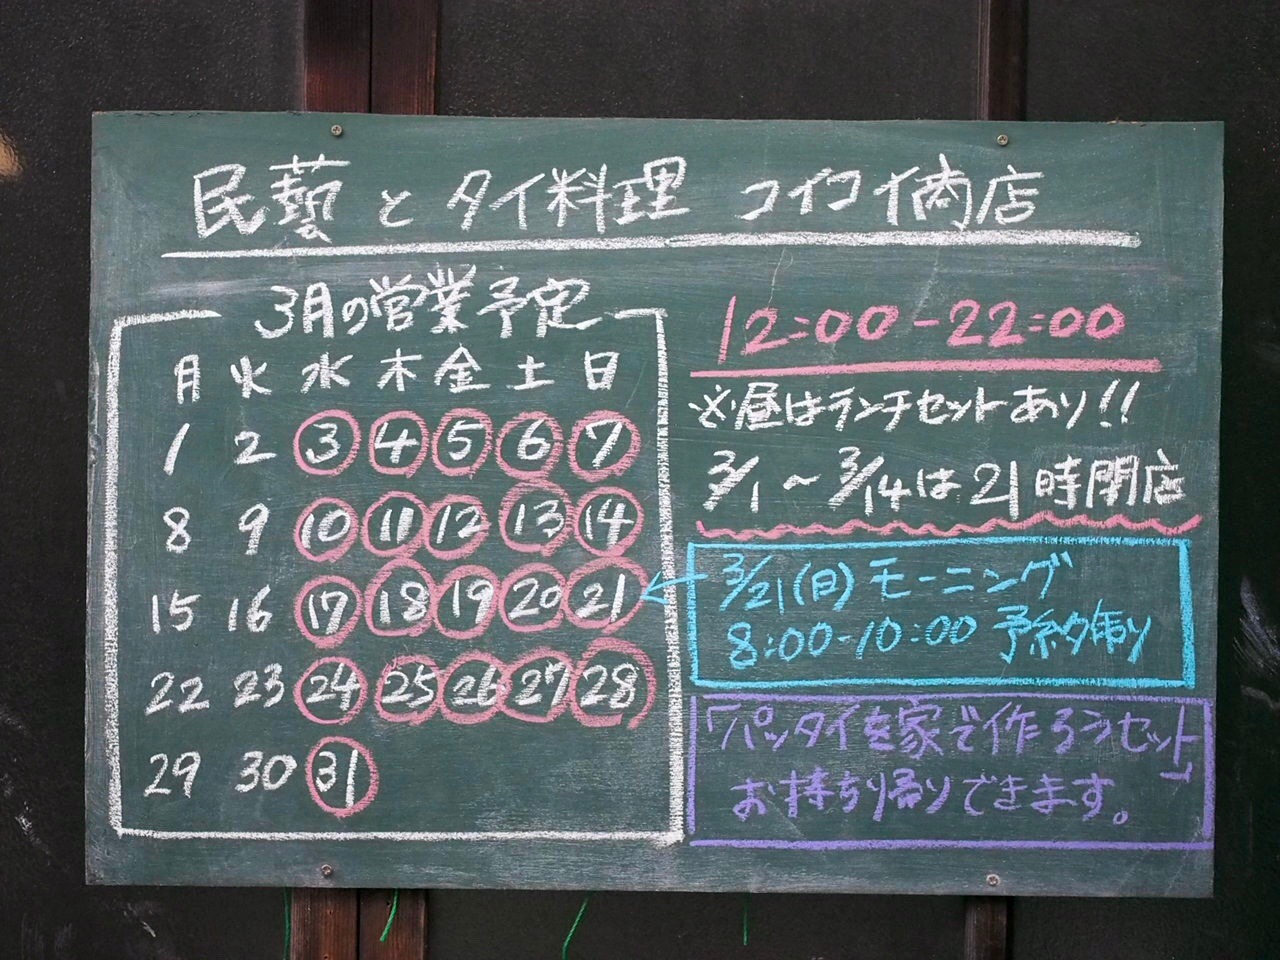 民藝とタイ料理 コイコイ商店
3月の営業予定
月 火 水 木 金 土 日
1 2 3 4 5 6 7
8 9 10 11 12 13 14
15 16 17 18 19 20 21
22 23 24 25 26 27 28
29 30 31
12:00-22:00
※昼はランチセットあり!!
3/1～3/14は21時閉店
3/21(日)モーニング
8:00-10:00 予約有り
「パッタイを家で作ろうセット」
お持ち帰りできます。